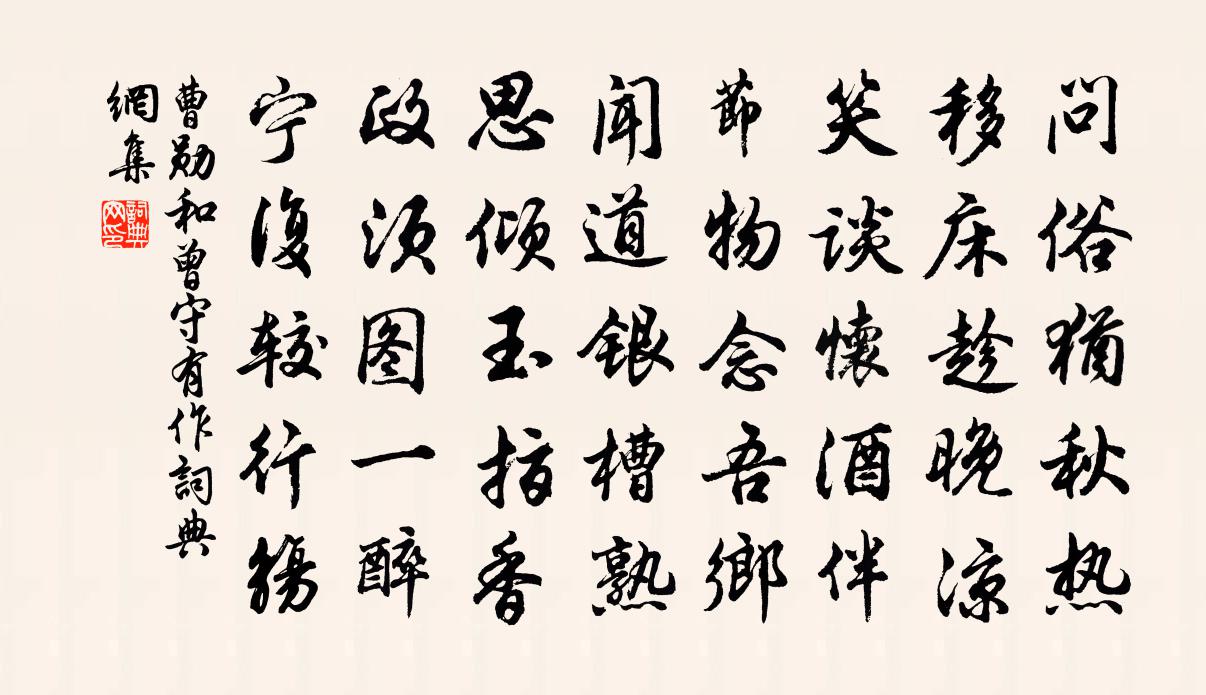 问俗猶秋热
移床趁晚凉
笑談懷酒伴
節物念吾鄉
闻道银槽熟
思倾玉指香
政须图一醉
宁復较行觴
曹勋和曾守有作詞典
網集
詞典網印